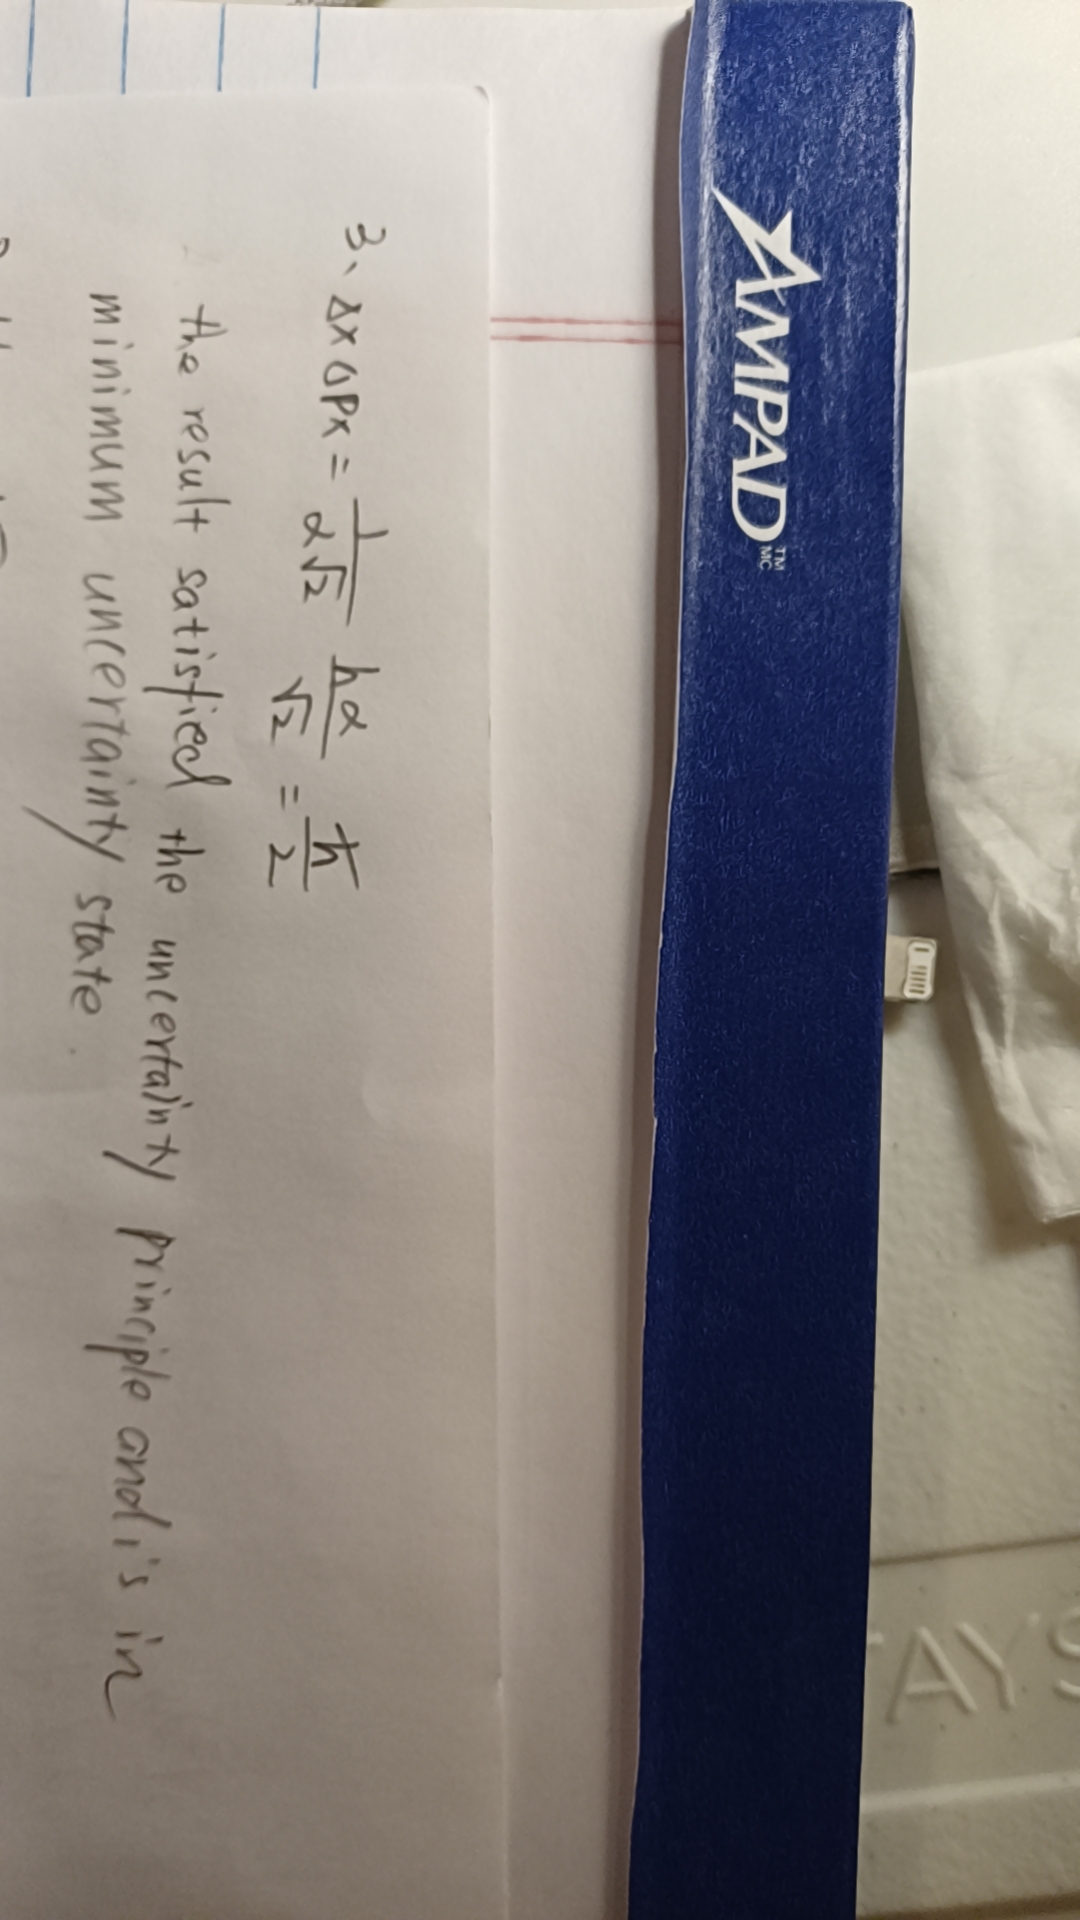 TAYS
AMPAD™ MC
3、ΔX ΔPX = 1/α√2 hα/√2 = ħ/2
the result satisfied the uncertainty principle and is in
minimum uncertainty state.